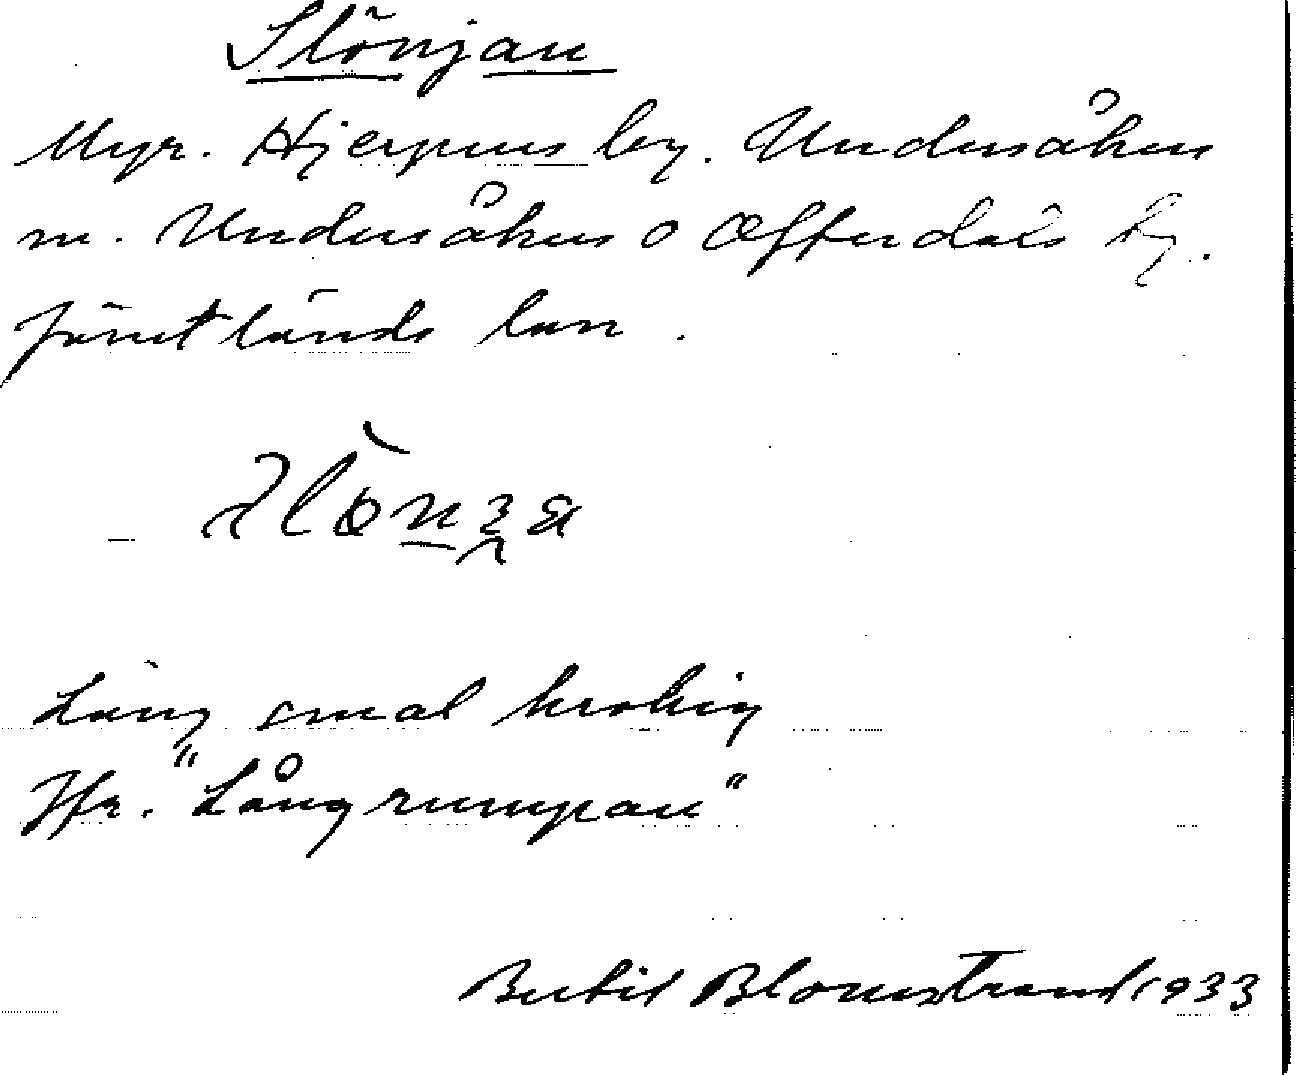 Slönjan
Myr. Hjerpens by. Undersåkers
m. Undersåkers o Offerdals tg.
Jämtlands län.
Lång smal krokig
Jfr. "Långrumpan"
Bertil Blomstrand 1933